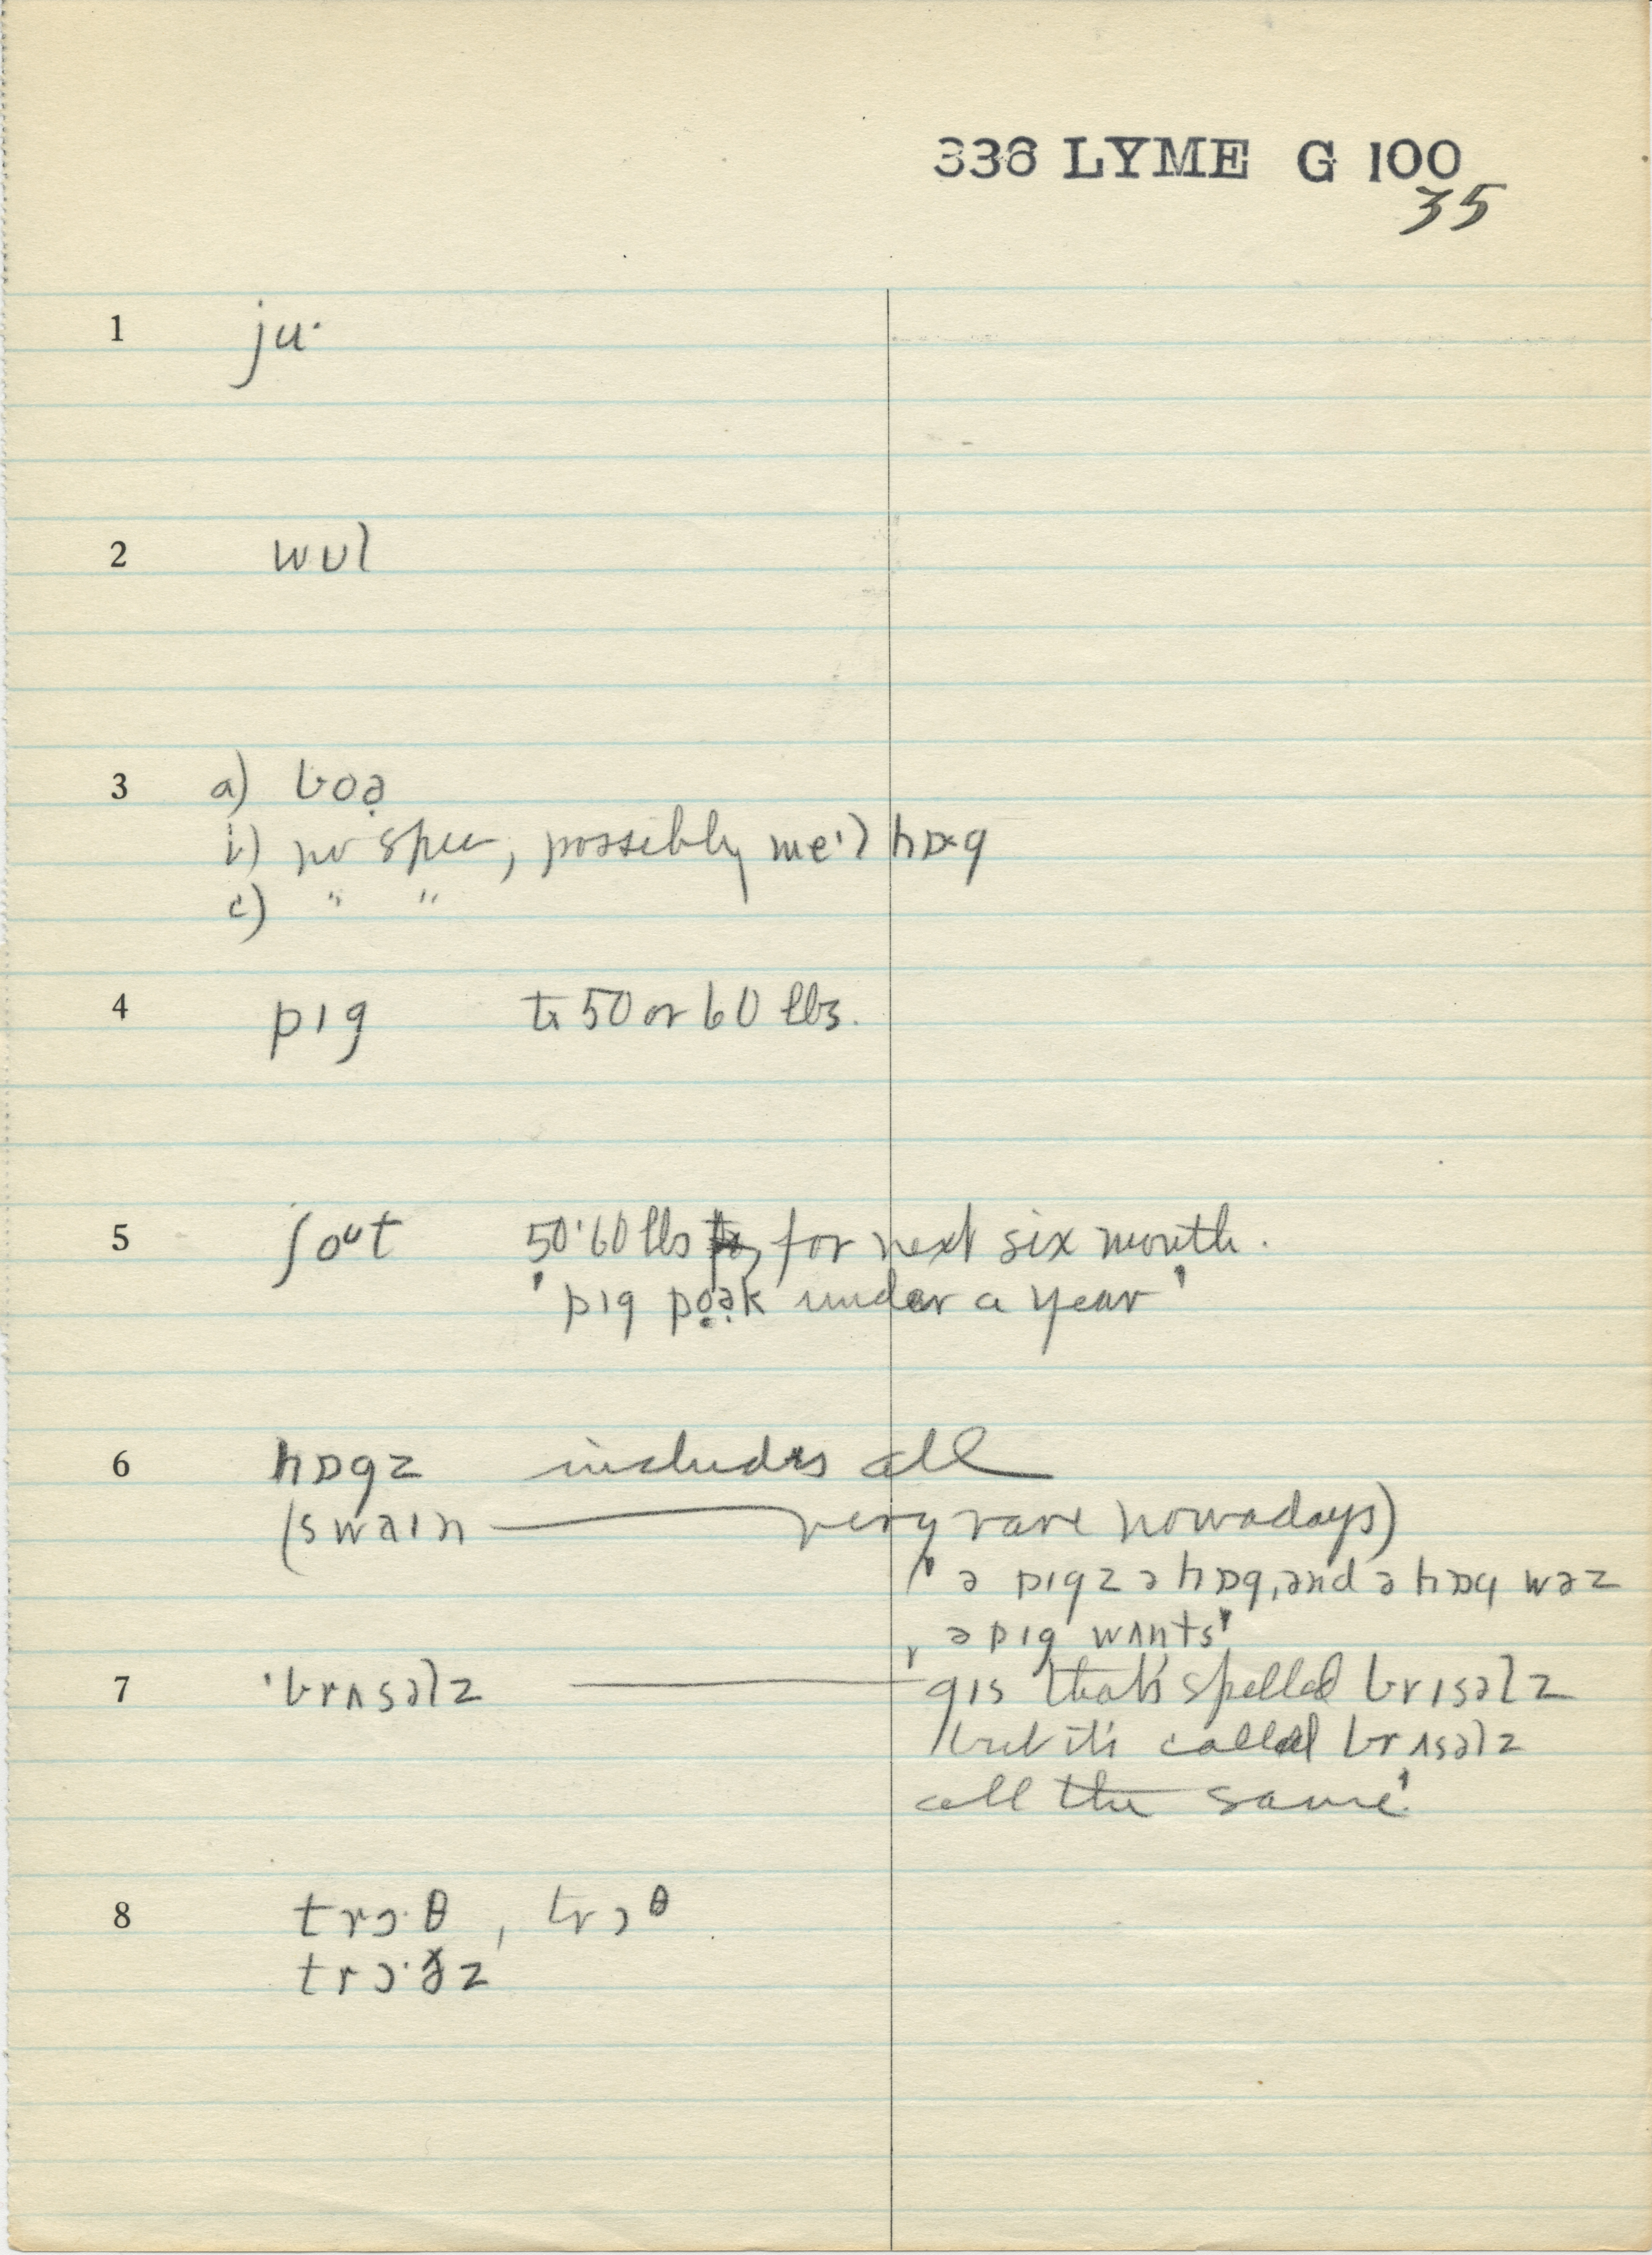 336 LYME G 100
35
1 ju·
2 wʊl
3 a) boə̣
b) no spec, possibly me'l hɒg
c) " "
4 pɪg to 50 or 60 lbs.
5 ʃoᴜt 50·60 lbs for next six month.
'pɪg pọə̣k under a year'
6 hɒgz includes all
(swaɪn — very rare nowadays)
'ə pɪgz ə hɒg, and ə hɒg wəz
ə pɪg wʌnts'
7 'brʌsəlz — 'gɪs that's spelled brɪsəlz
but it's called brʌsəlz
all the same'
8 trɔ·θ, trɔθ
trɔ·ðz